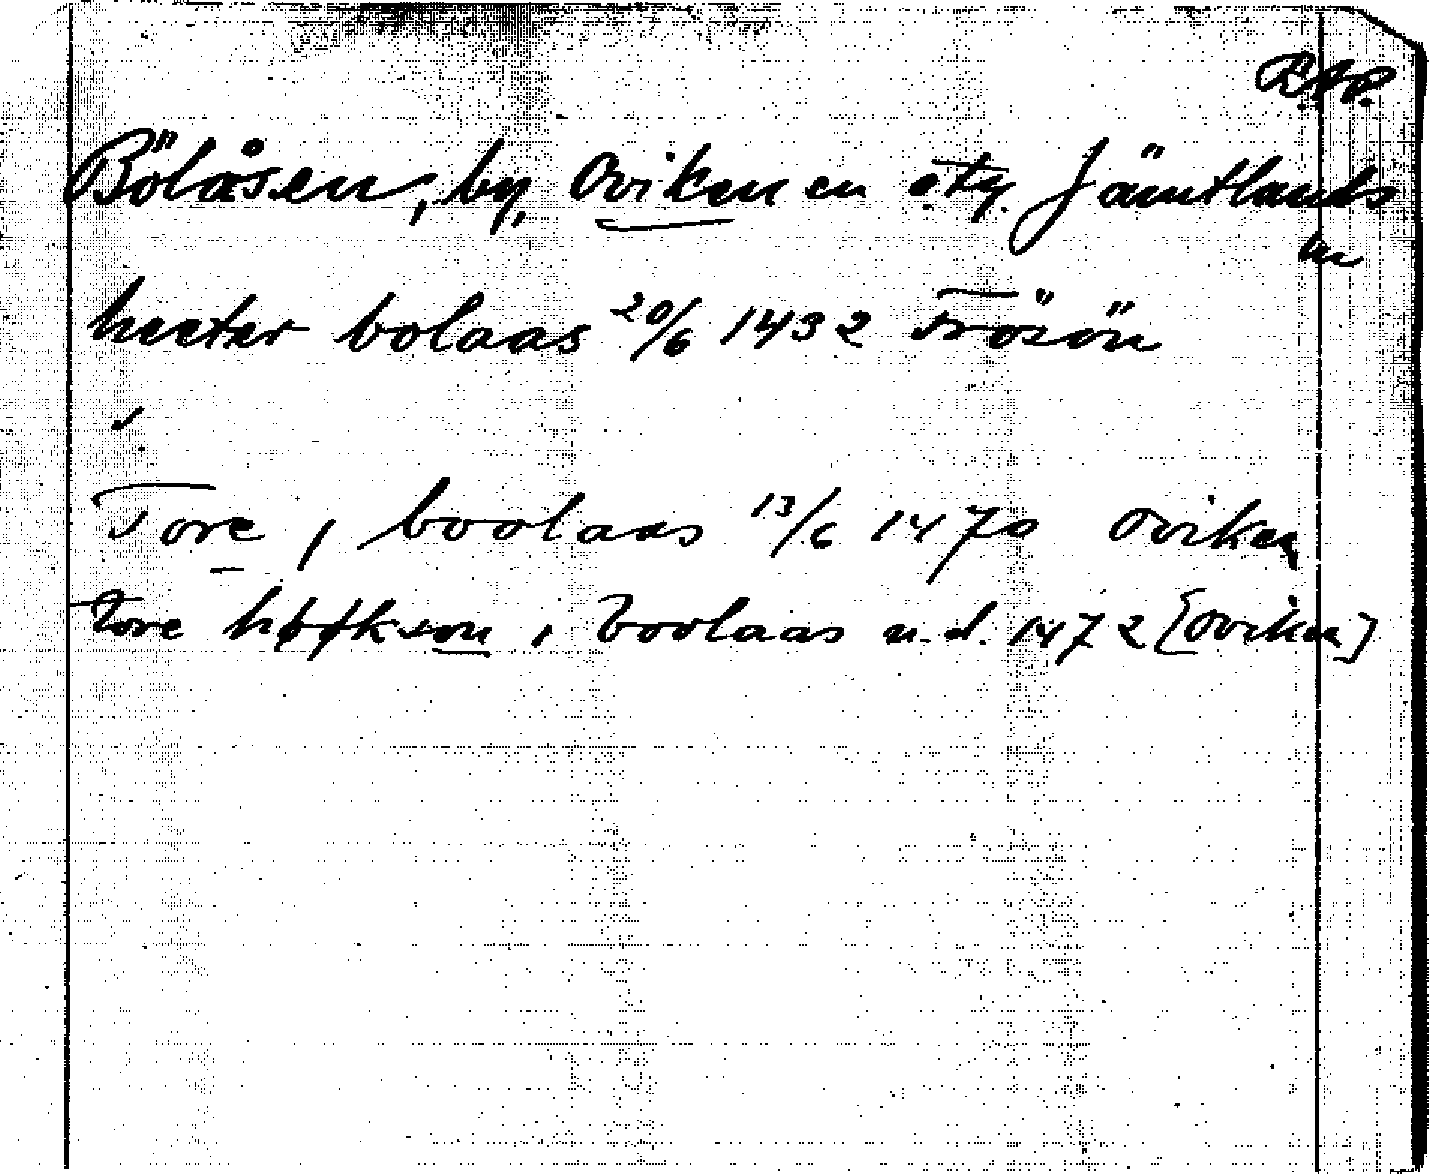 R.A.P.
Bölåsen, by, Oviken sn o. tg. Jämtlands
län
heeter bolaas 20/6 1432 Frösön
Tore i boolaas 13/6 1470 Oviken
tore høøkson i boolaas u.d. 1472 [Oviken]